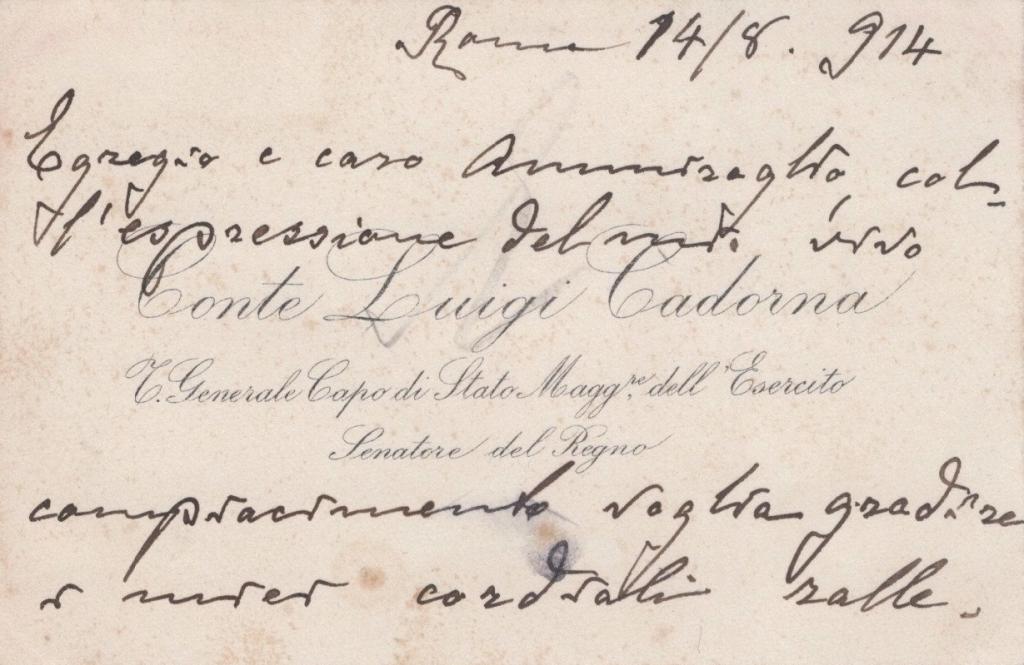 Roma 14/8. 914
Egregio e caro Ammiraglio, col-
l'espressione del mio vivo
Conte Luigi Cadorna
T. Generale Capo di Stato Maggre. dell'Esercito
Senatore del Regno
compiacimento voglia gradire
i miei cordiali ralle-